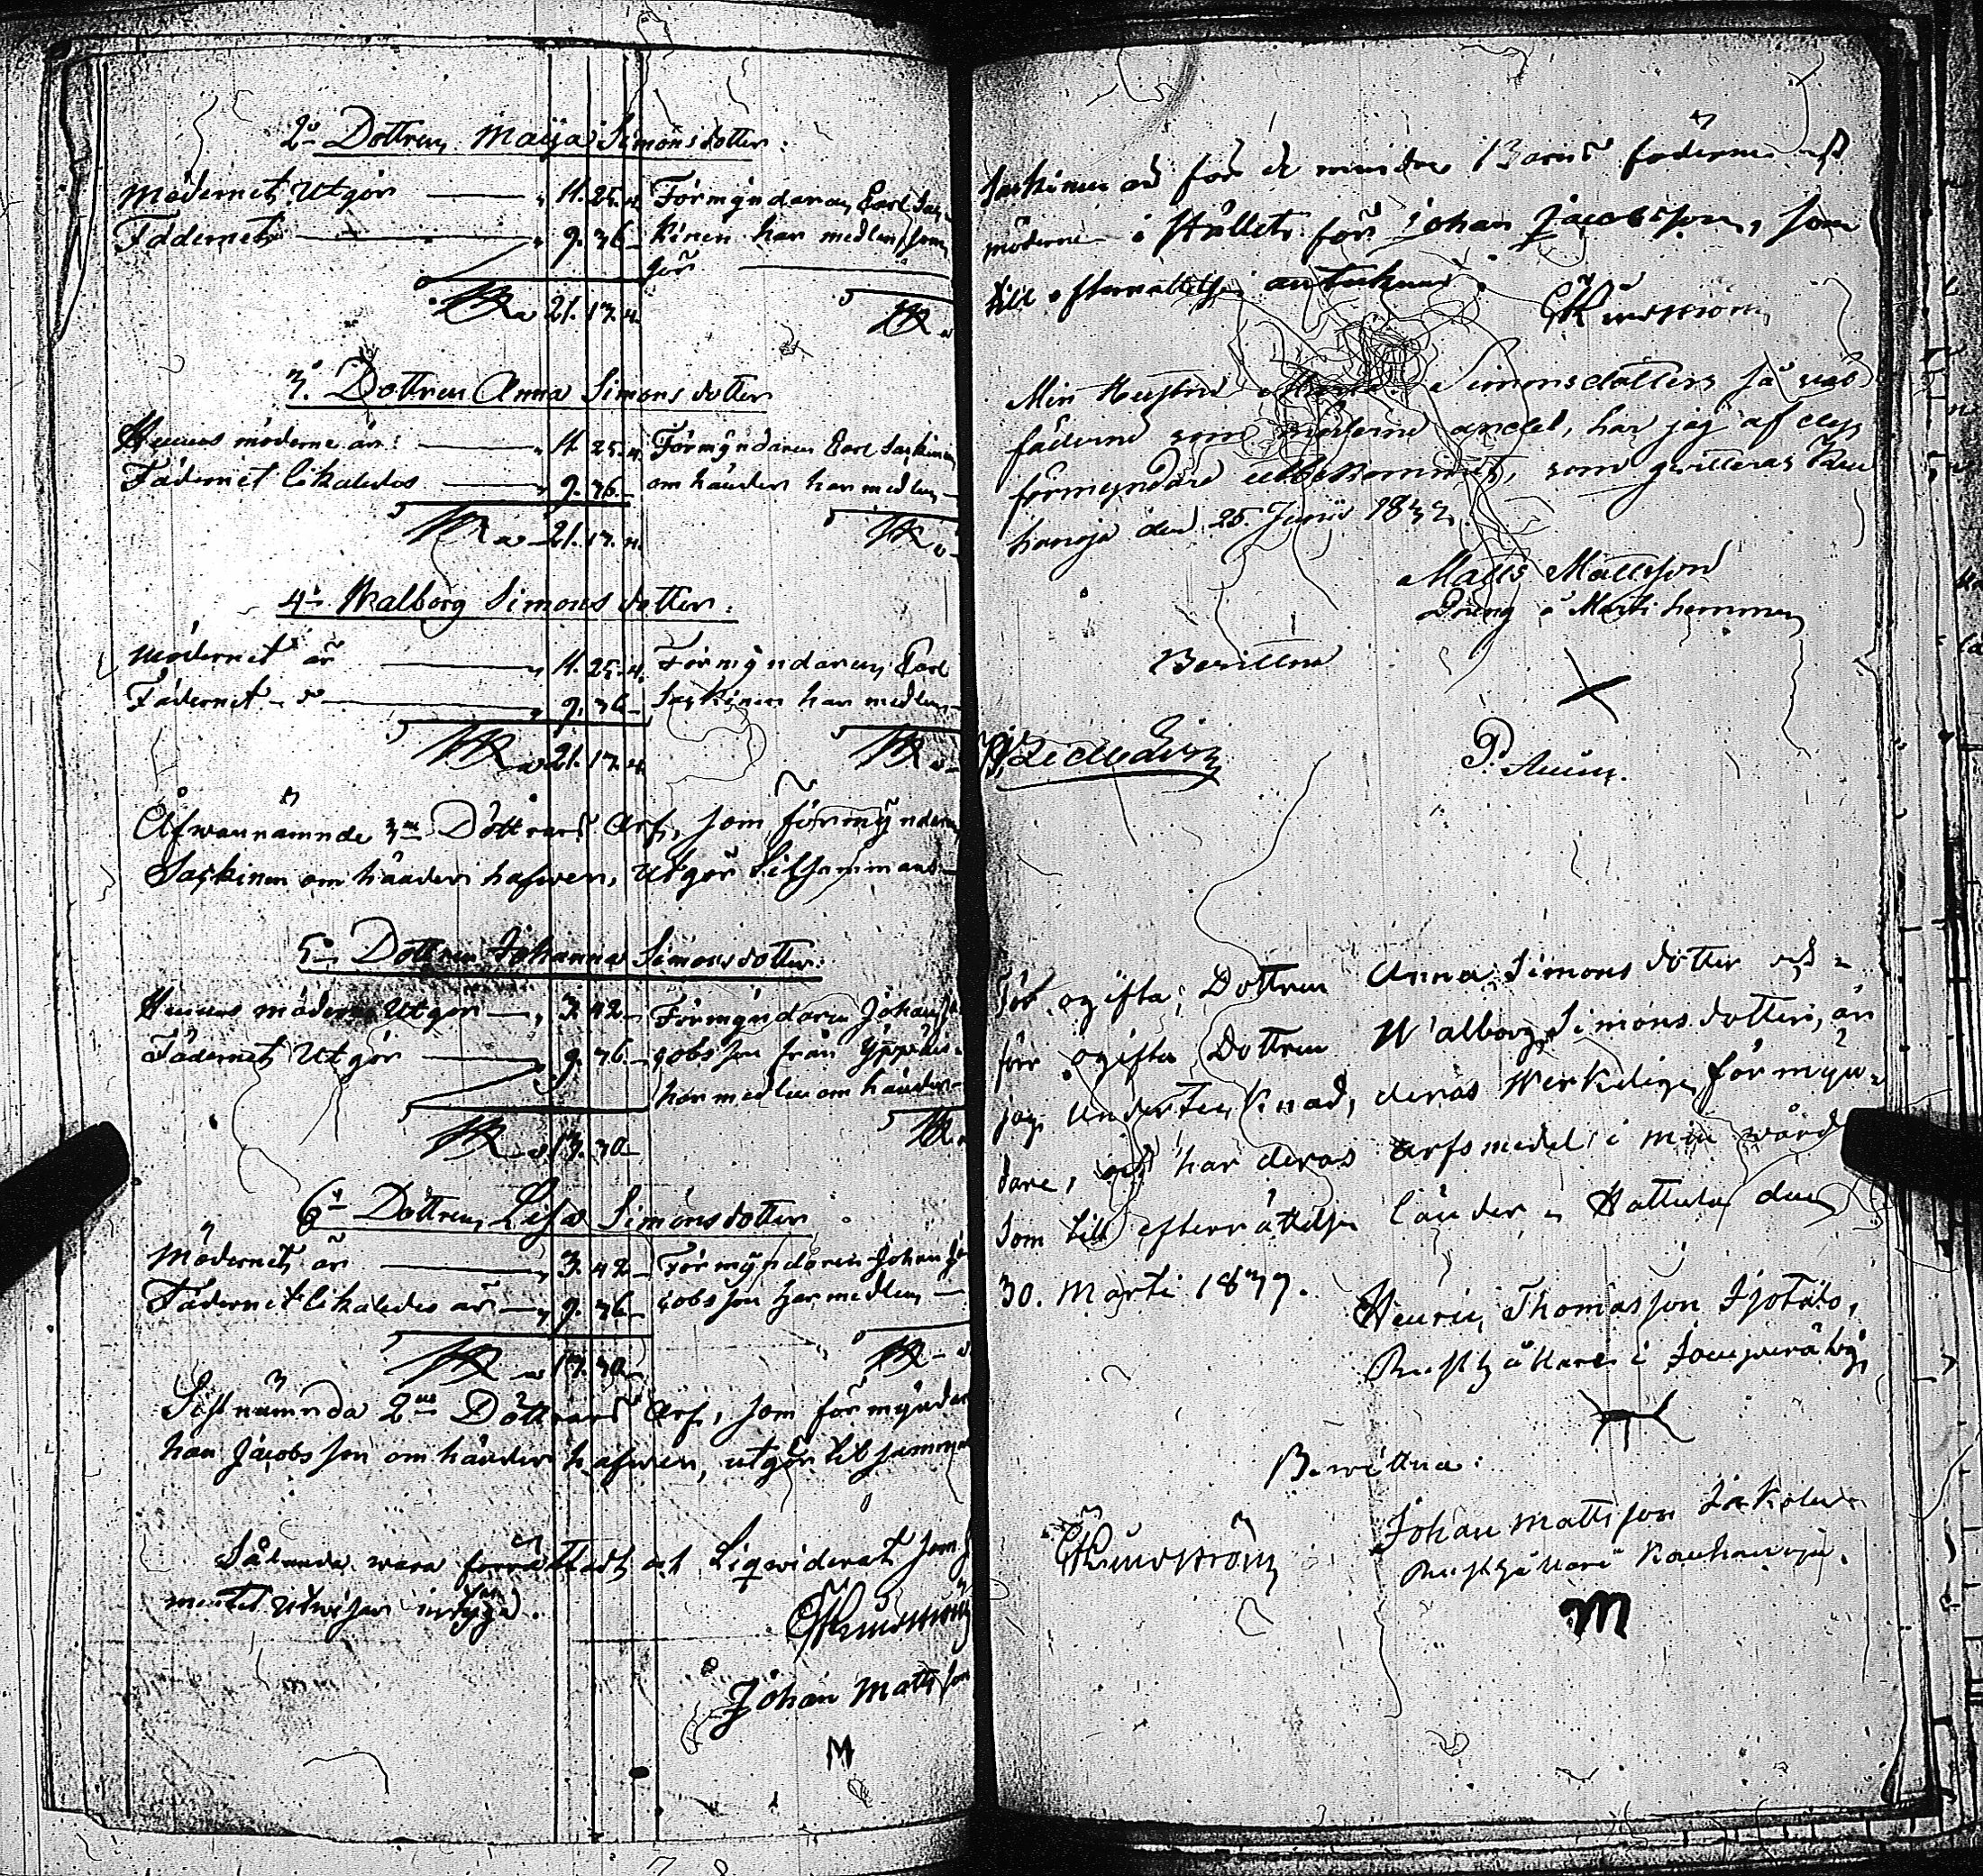 2o Dottren Maija Simonsdotter:
Mödernet Utgör " 11. 25. 4. Förmyndaren Carl Sas-
Fädernet " 9. 36 - kinen har medlen, som
för
BR 21. 13. 4. BR
3o Dottren Anna Simonsdotter
Hennes möderne är: " 11. 25. 4. Förmyndaren Carl Saskinen
Fädernet likaledes " 9. 36 - om händer har medlen
BR 21. 13. 4. BR
4o Walborg Simonsdotter:
Mödernet är " 11. 25. 4. Förmyndaren Carl
Fädernet " 9. 36 - Saskinen har medlen
BR 21. 13. 4. BR
Åfwannämnde 3ne Döttrars Arf, som förmyndaren
Saskinen om händer hafwer, Utgör tilsammans
5o Dottren Johanna Simonsdotter:
Hennes möderne Utgör " 3. 42 - Förmyndaren Johan Ja
Fädernet Utgör " 9. 36 - cobsson från
har medlen om händer
BR 13. 30 - BR
6o Dottren Lisa Simonsdotter
Mödernet är " 3. 42 - Förmyndaren Johan Ja
Fädernet likaledes är " 9. 36 - cobsson har medlen
BR 13. 30 - BR
Sistnämnda 2ne Döttrars Arf, som förmyndar
han Jacobsson om händer hafwer, utgör tilsamman
Sålunda wara förrättadt och Liqwiderat som
mentet utwisar intygar.
Johan Mattsson
M
Saskinen och för de mindre Barns fäderne och
möderne i stället för Johan Jacobsson, som
till efterrättelse antecknas.
Min Hustru Maria Simonsdotters så wäl
fäderne som möderne andel, har jag af dess
förmyndare utbekommit, som qwitteras Kau
hanoja den 25. Junii 1832.
Matts Mattsson
Dräng å Martti hemman
Bevittna
X
För ogifta Dottren Anna Simonsdotter och
för ogifta Dottren Walborg Simonsdotter, är
jag undertecknad, deras Werkelige förmyn-
dare, och har deras arfsmedel i min wård
Som till efterrättelse länder. Hattula den
30. Martii 1837.
Henric Thomasson
Rusthållare i
Bewittna:
Johan Mattsson
Rusthållare Kauhanoja.
M